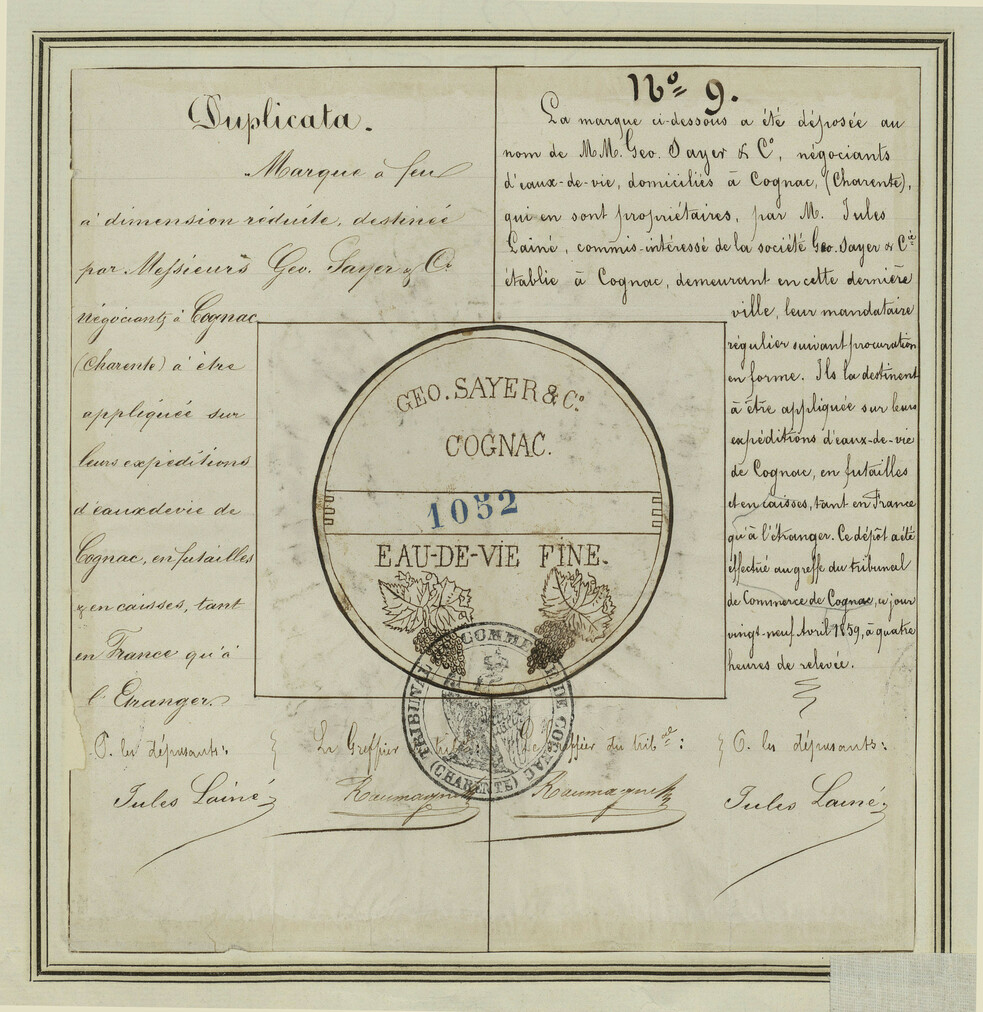 Duplicata.
Marque à feu
à dimension réduite, destinée
par Messieurs Geo. Sayer & Co.
négociants à Cognac
(Charente) à être
appliquée sur
leurs expéditions
d'eaux de vie de
Cognac, en futailles
& en caisses, tant
en France qu'à
l'Etranger.
P. les déposants:
Jules Lainé
Le Greffier
No 9.
La marque ci-dessous a été déposée au
nom de M.M. Geo. Sayer & Co, négociants
d'eaux-de-vie, domiciliés à Cognac, (Charente),
qui en sont propriétaires, par M. Jules
Lainé, commis-intéressé de la société Geo. Sayer & Cie
établie à Cognac, demeurant en cette dernière
ville, leur mandataire
régulier suivant procuration
en forme. Ils la destinent
à être appliquée sur leurs
expéditions d'eaux-de-vie
de Cognac, en futailles
et en caisses, tant en France
qu'à l'étranger. Ce dépôt a été
effectué au greffe du tribunal
de Commerce de Cognac, ce jour
vingt-neuf Avril 1859, à quatre
heures de relevée.
Le Greffier du tribal:
P. les déposants:
Jules Lainé
GEO. SAYER & Co.
COGNAC.
1052
EAU-DE-VIE FINE.
TRIBUNAL DE COMMERCE DE COGNAC
(CHARENTE)